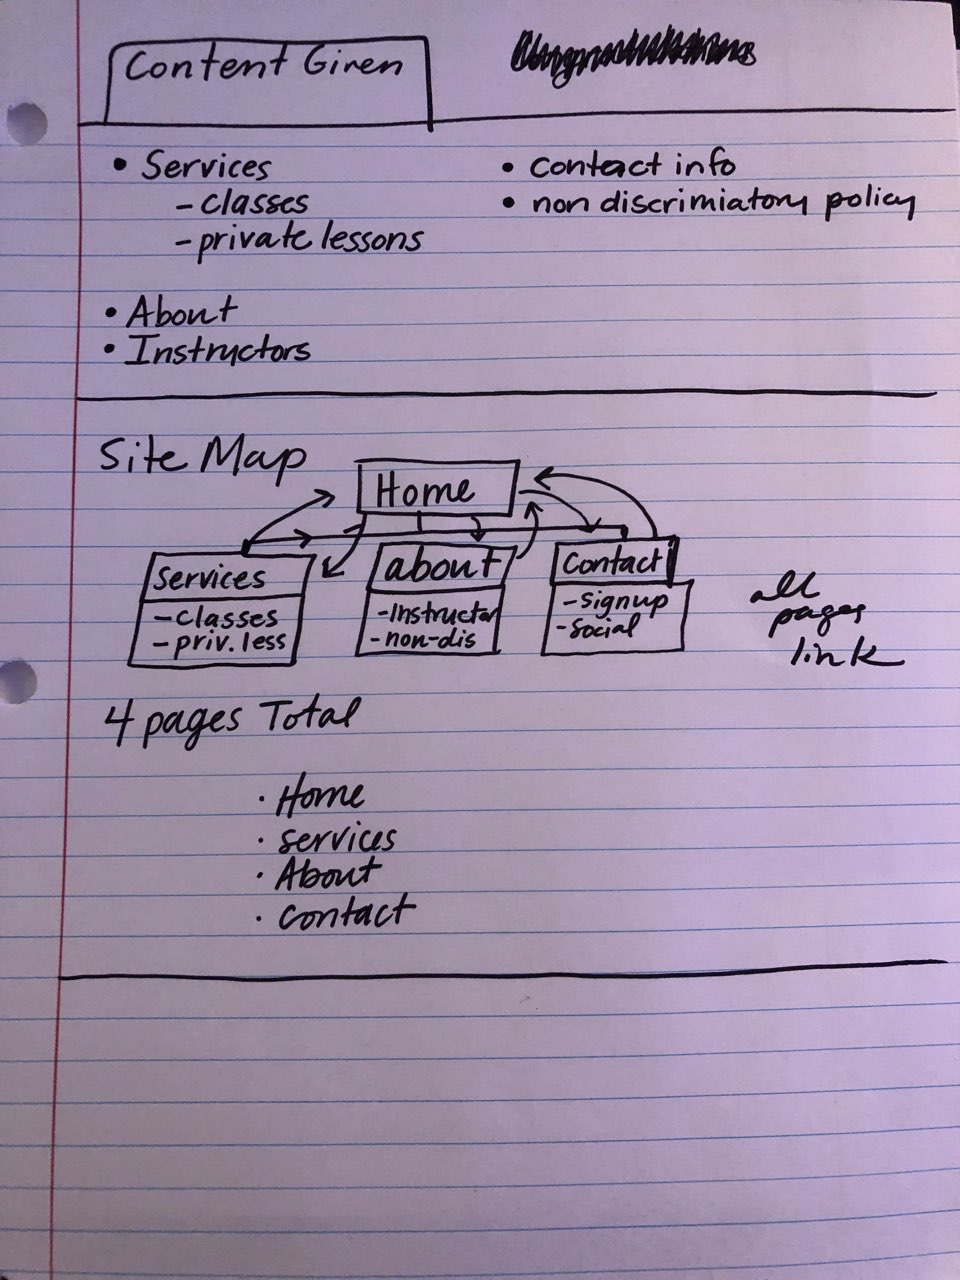 Content Given
• Services
- classes
- private lessons
• About
• Instructors
• Contact info
• non discrimiatory policy
Site Map
Home
Services
- classes
- priv. less
about
- Instructor
- non-dis
Contact
- signup
- Social
all
pages
link
4 pages Total
· Home
· services
· About
· contact